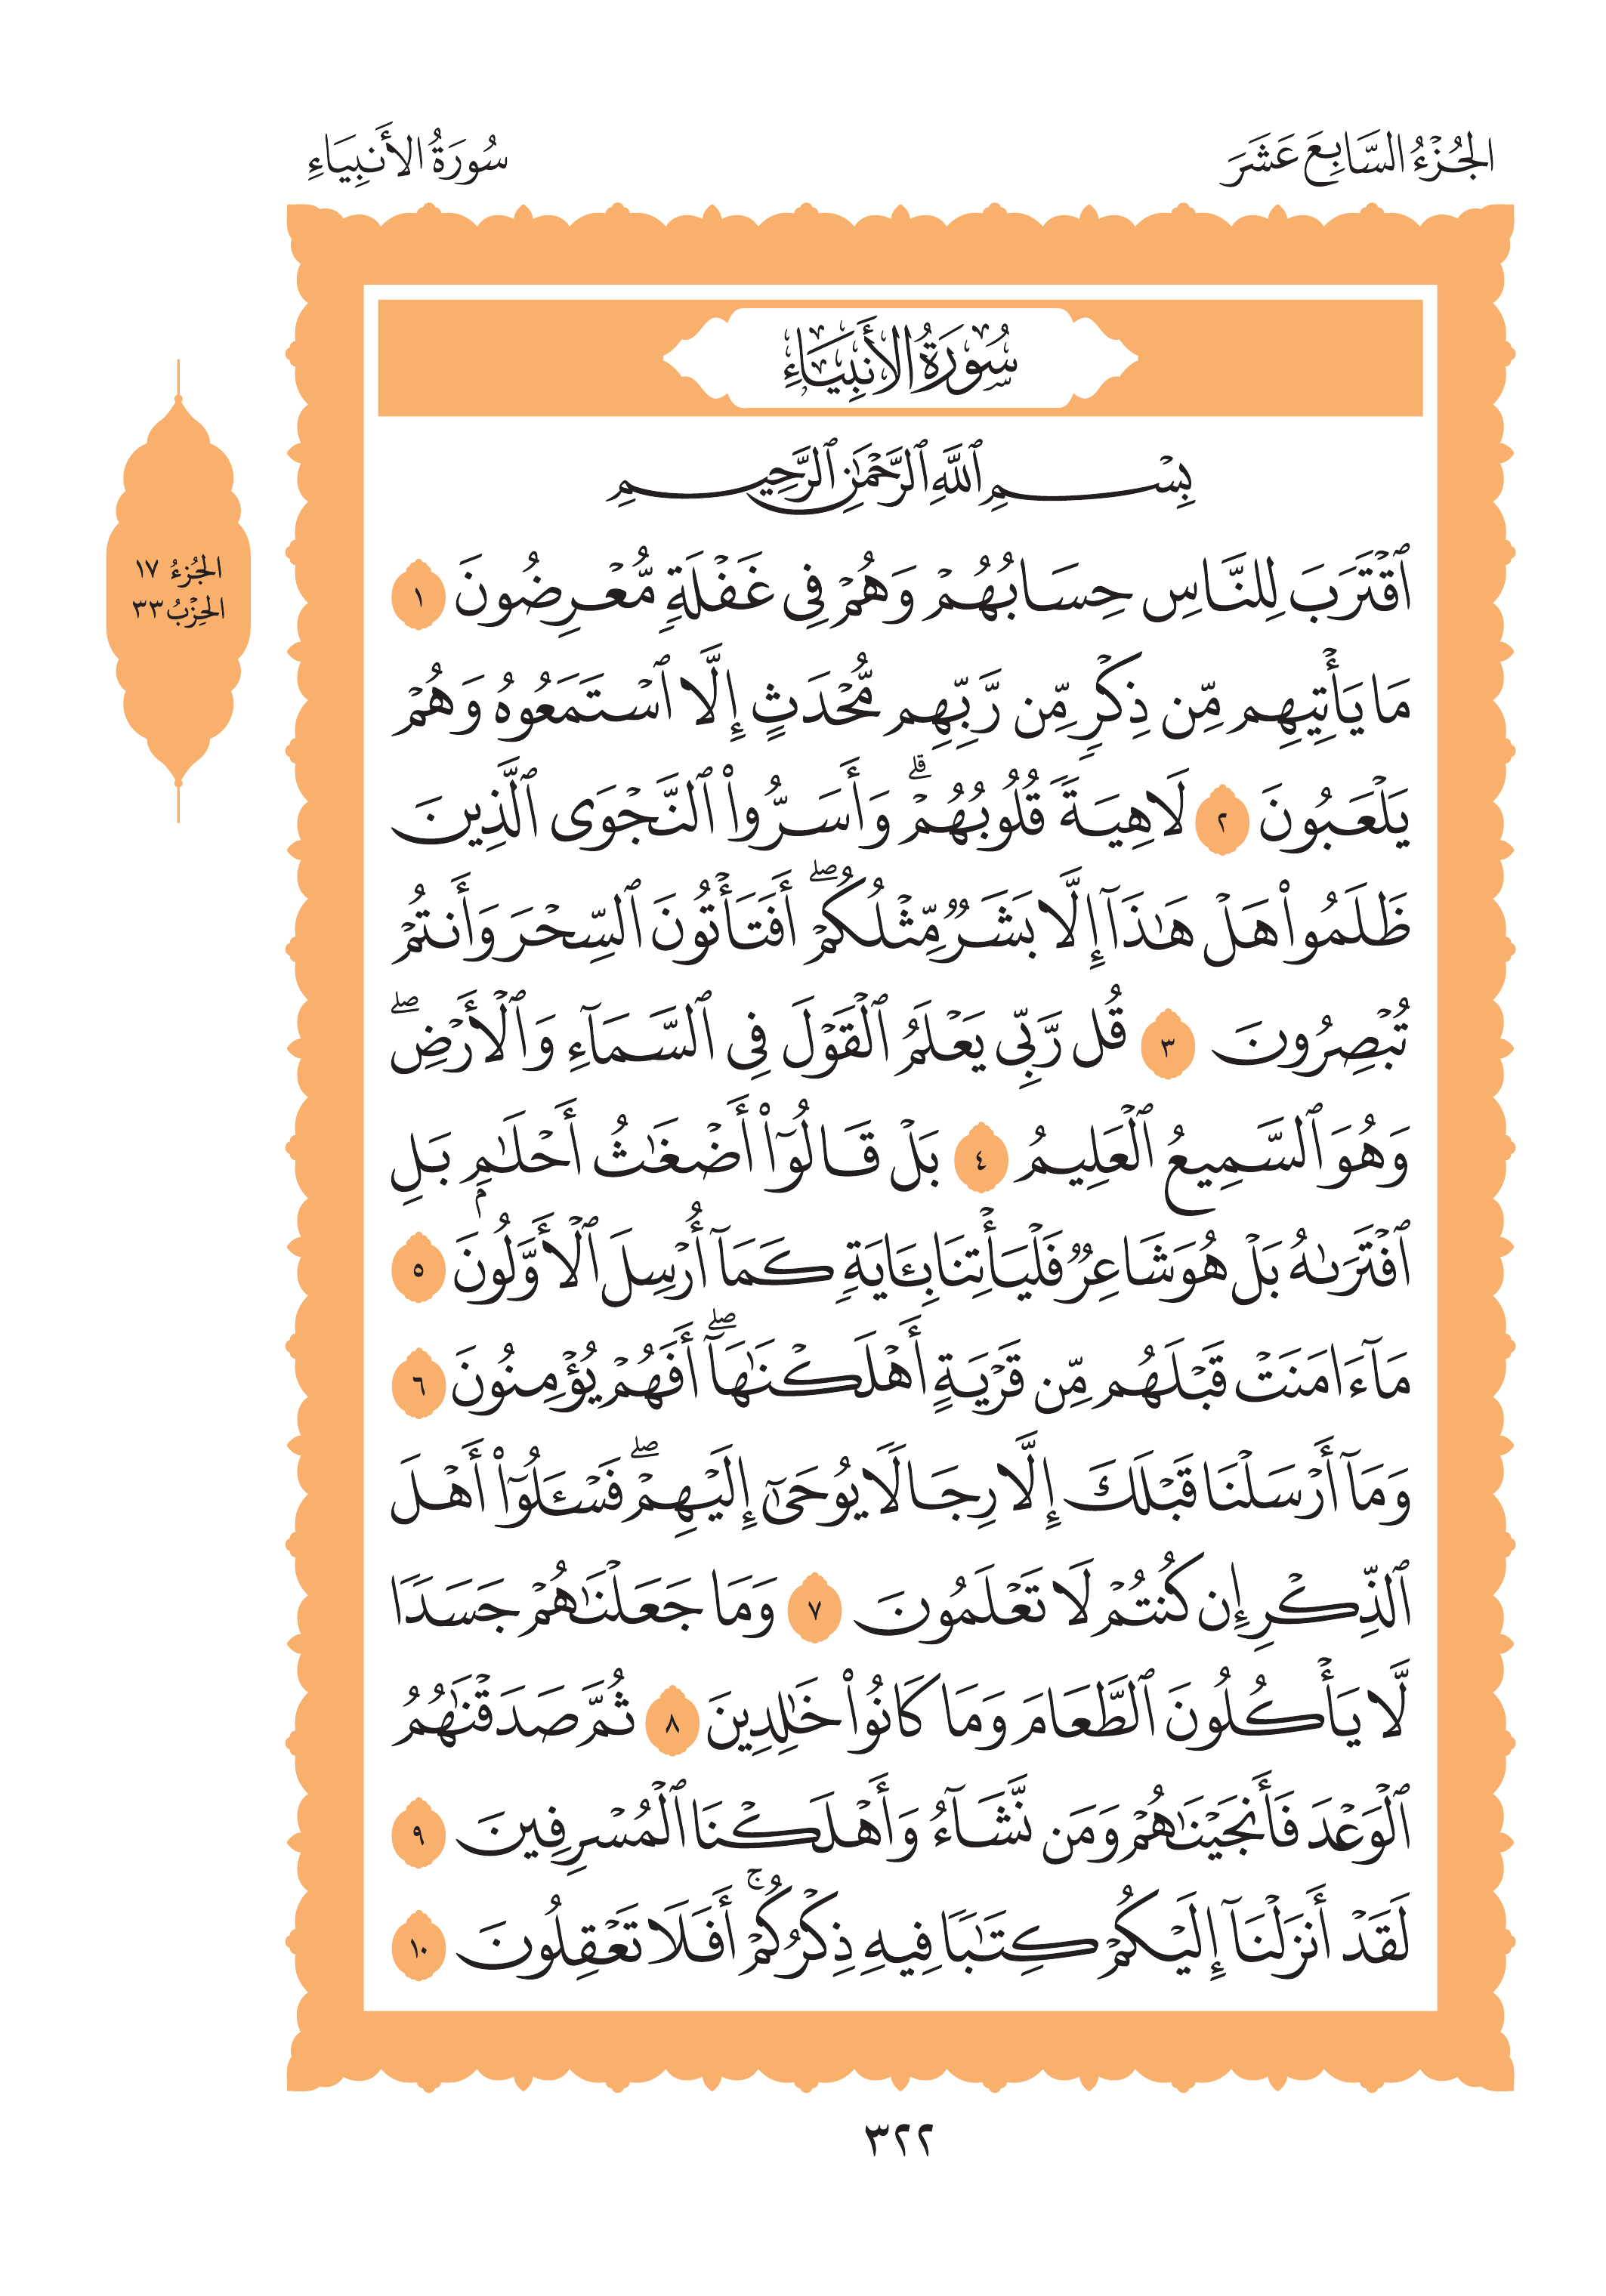 الجُزْءُ السَّابِعَ عَشَرَ
سُورَةُ الأَنبِيَاءِ
سُورَةُ الأَنبِيَاءِ
بِسْمِ ٱللَّهِ ٱلرَّحْمَٰنِ ٱلرَّحِيمِ
ٱقْتَرَبَ لِلنَّاسِ حِسَابُهُمْ وَهُمْ فِي غَفْلَةٖ مُّعْرِضُونَ ١
مَا يَأْتِيهِم مِّن ذِكْرٖ مِّن رَّبِّهِم مُّحْدَثٍ إِلَّا ٱسْتَمَعُوهُ وَهُمْ
يَلْعَبُونَ ٢ لَاهِيَةٗ قُلُوبُهُمْۗ وَأَسَرُّواْ ٱلنَّجْوَى ٱلَّذِينَ
ظَلَمُواْ هَلْ هَٰذَآ إِلَّا بَشَرٞ مِّثْلُكُمْۖ أَفَتَأْتُونَ ٱلسِّحْرَ وَأَنتُمْ
تُبْصِرُونَ ٣ قُل رَّبِّي يَعْلَمُ ٱلْقَوْلَ فِي ٱلسَّمَآءِ وَٱلْأَرْضِۖ
وَهُوَ ٱلسَّمِيعُ ٱلْعَلِيمُ ٤ بَلْ قَالُوٓاْ أَضْغَٰثُ أَحْلَٰمِۭ بَلِ
ٱفْتَرَىٰهُ بَلْ هُوَ شَاعِرٞ فَلْيَأْتِنَا بِـَٔايَةٖ كَمَآ أُرْسِلَ ٱلْأَوَّلُونَ ٥
مَآ ءَامَنَتْ قَبْلَهُم مِّن قَرْيَةٍ أَهْلَكْنَٰهَآۖ أَفَهُمْ يُؤْمِنُونَ ٦
وَمَآ أَرْسَلْنَا قَبْلَكَ إِلَّا رِجَالٗا يُوحَىٰٓ إِلَيْهِمْۖ فَسْـَٔلُوٓاْ أَهْلَ
ٱلذِّكْرِ إِن كُنتُمْ لَا تَعْلَمُونَ ٧ وَمَا جَعَلْنَٰهُمْ جَسَدٗا
لَّا يَأْكُلُونَ ٱلطَّعَامَ وَمَا كَانُواْ خَٰلِدِينَ ٨ ثُمَّ صَدَقْنَٰهُمُ
ٱلْوَعْدَ فَأَنجَيْنَٰهُمْ وَمَن نَّشَآءُ وَأَهْلَكْنَا ٱلْمُسْرِفِينَ ٩
لَقَدْ أَنزَلْنَآ إِلَيْكُمْ كِتَٰبٗا فِيهِ ذِكْرُكُمْۚ أَفَلَا تَعْقِلُونَ ١٠
الجُزءُ ١٧
الحِزْبُ ٣٣
٣٢٢